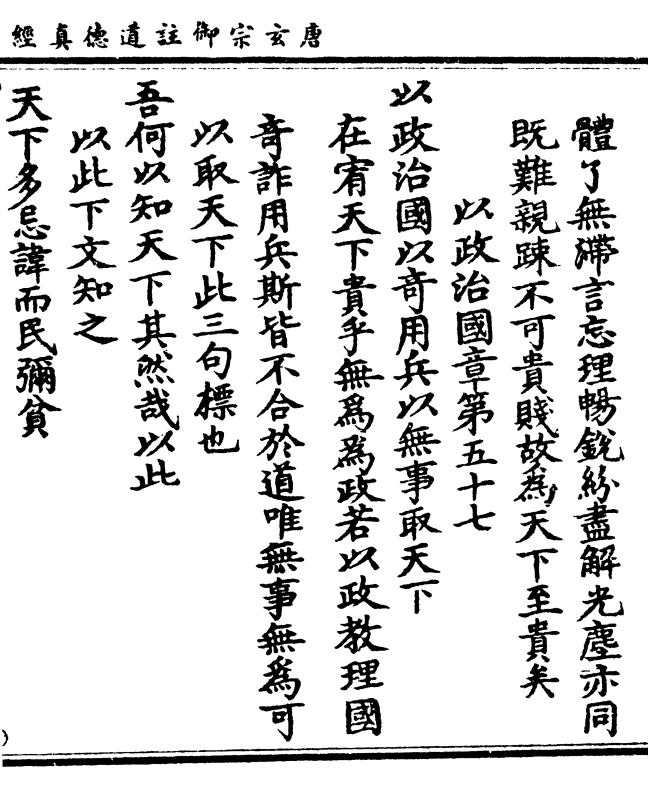 唐玄宗御註道德真經
體了無滯言忘理暢銳紛盡解光塵亦同
既難親踈不可貴賤故為天下至貴矣
以政治國章第五十七
以政治國以竒用兵以無事取天下
在宥天下貴乎無為為政若以政教理國
竒詐用兵斯皆不合於道唯無事無為可
以取天下此三句標也
吾何以知天下其然哉以此
以此下文知之
天下多忌諱而民彌貧